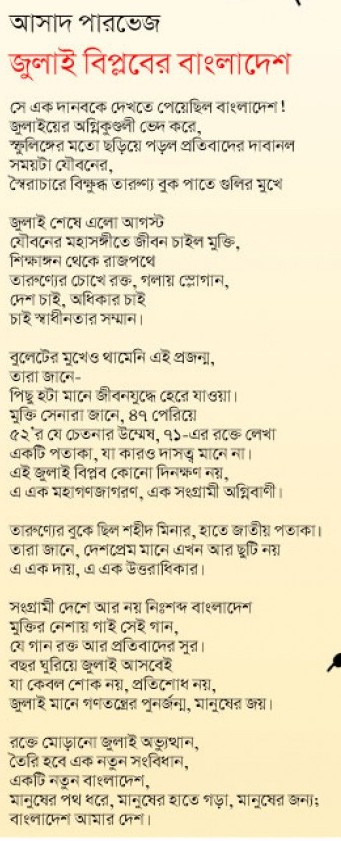 আসাদ পারভেজ
জুলাই বিপ্লবের বাংলাদেশ
সে এক দানবকে দেখতে পেয়েছিল বাংলাদেশ!
জুলাইয়ের অগ্নিকুণ্ডলী ভেদ করে,
স্ফুলিঙ্গের মতো ছড়িয়ে পড়ল প্রতিবাদের দাবানল
সময়টা যৌবনের,
স্বৈরাচারে বিক্ষুব্ধ তারুণ্য বুক পাতে গুলির মুখে
জুলাই শেষে এলো আগস্ট
যৌবনের মহাসঙ্গীতে জীবন চাইল মুক্তি,
শিক্ষাঙ্গন থেকে রাজপথে
তারুণ্যের চোখে রক্ত, গলায় স্লোগান,
দেশ চাই, অধিকার চাই
চাই স্বাধীনতার সম্মান।
বুলেটের মুখেও থামেনি এই প্রজন্ম,
তারা জানে-
পিছু হটা মানে জীবনযুদ্ধে হেরে যাওয়া।
মুক্তি সেনারা জানে, ৪৭ পেরিয়ে
৫২'র যে চেতনার উম্মেষ, ৭১-এর রক্তে লেখা
একটি পতাকা, যা কারও দাসত্ব মানে না।
এই জুলাই বিপ্লব কোনো দিনক্ষণ নয়,
এ এক মহাগণজাগরণ, এক সংগ্রামী অগ্নিবাণী।
তারুণ্যের বুকে ছিল শহীদ মিনার, হাতে জাতীয় পতাকা।
তারা জানে, দেশপ্রেম মানে এখন আর ছুটি নয়
এ এক দায়, এ এক উত্তরাধিকার।
সংগ্রামী দেশে আর নয় নিঃশব্দ বাংলাদেশ
মুক্তির নেশায় গাই সেই গান,
যে গান রক্ত আর প্রতিবাদের সুর।
বছর ঘুরিয়ে জুলাই আসবেই
যা কেবল শোক নয়, প্রতিশোধ নয়,
জুলাই মানে গণতন্ত্রের পুনর্জন্ম, মানুষের জয়।
রক্তে মোড়ানো জুলাই অভ্যুত্থান,
তৈরি হবে এক নতুন সংবিধান,
একটি নতুন বাংলাদেশ,
মানুষের পথ ধরে, মানুষের হাতে গড়া, মানুষের জন্য;
বাংলাদেশ আমার দেশ।